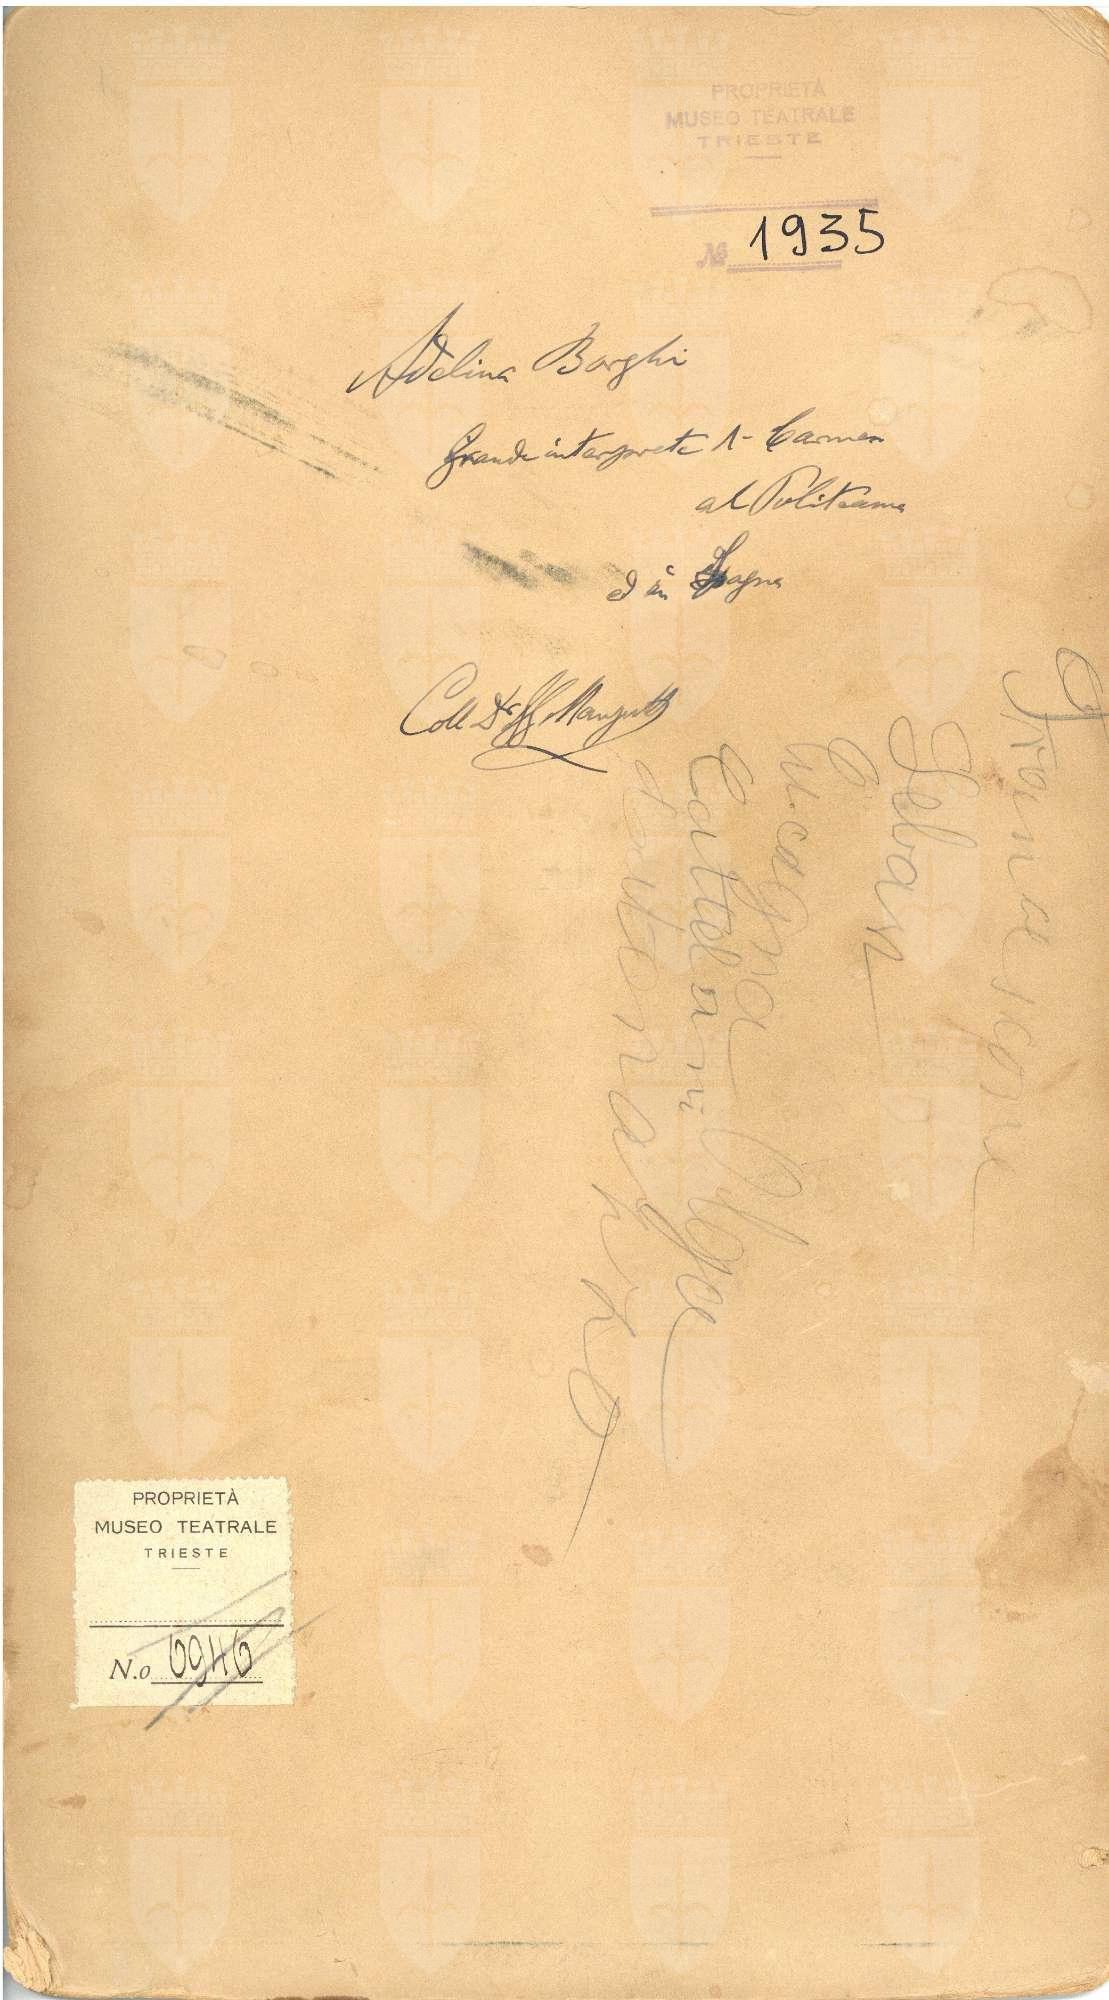 PROPRIETÀ
MUSEO TEATRALE
TRIESTE
№ 1935
Adelina Borghi
Grande interprete 1- Carmen
al Politeama
ed in Spagna
Coll Dr
Francescone
Selvan
C.
Cattelani Olga
PROPRIETÀ
MUSEO TEATRALE
TRIESTE
N.o 6946